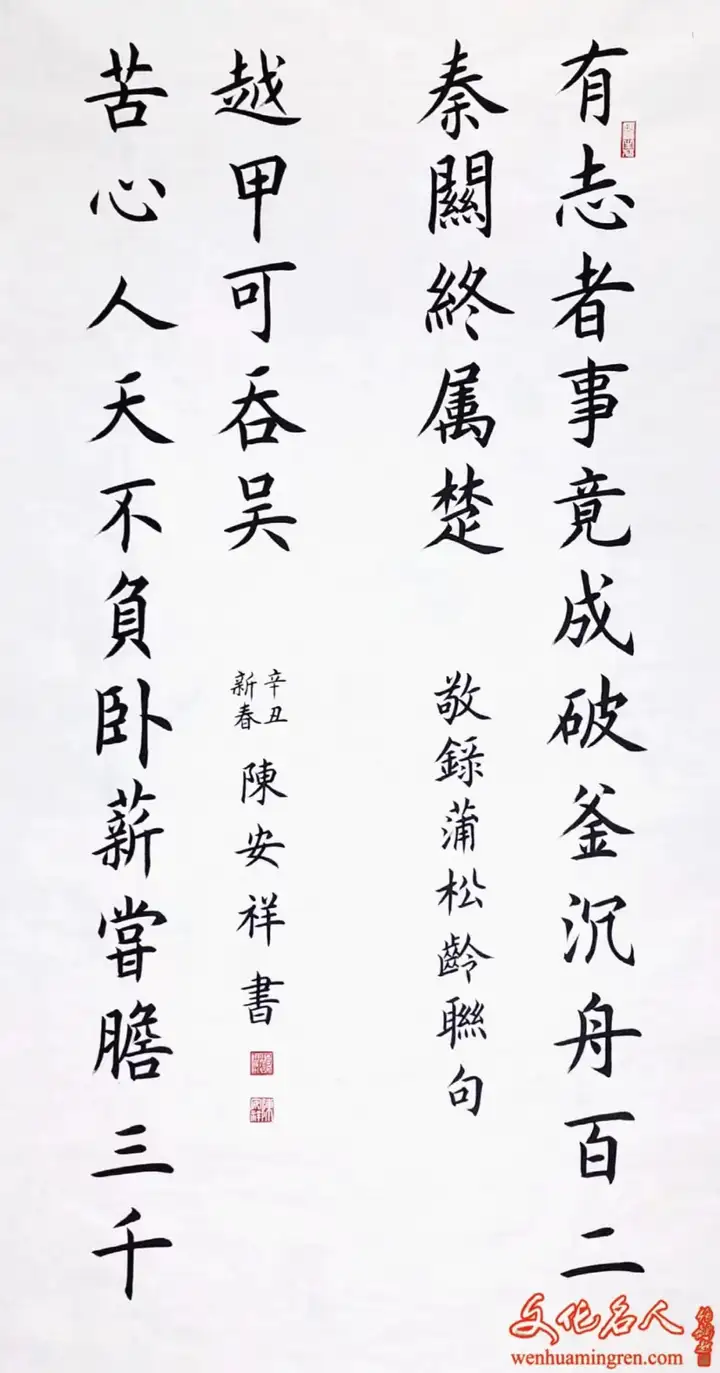 有志者事竟成破釜沉舟百二
秦關終属楚
敬錄蒲松齡聯句
苦心人天不負卧薪嘗膽三千
越甲可吞吳
辛丑
新春
陳安祥書
文化名人
wenhuamingren.com